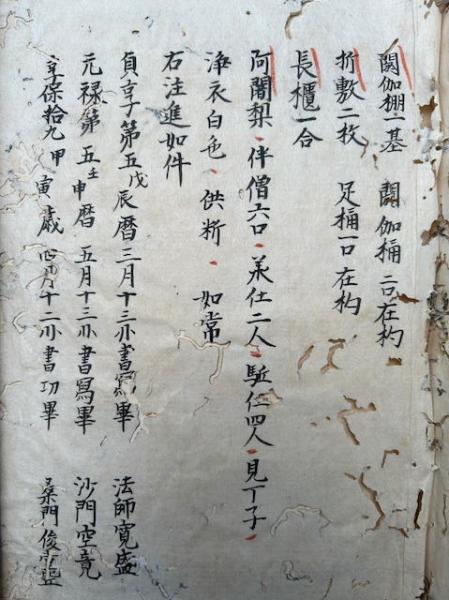 閼伽棚一基 閼伽桶二口在杓
折敷二枚 足桶一口在杓
長櫃一合
阿闍梨 伴僧六口 承仕二人 駈仕四人 見丁子
浄衣白色 供析 如常
右注進如件
貞享第五戊辰暦三月十三尓書寫畢 法師寛盛
元禄第五壬申暦 五月十三尓書寫畢 沙門空竟
享保拾九甲寅歳四月十二尓書功畢 桑門俊